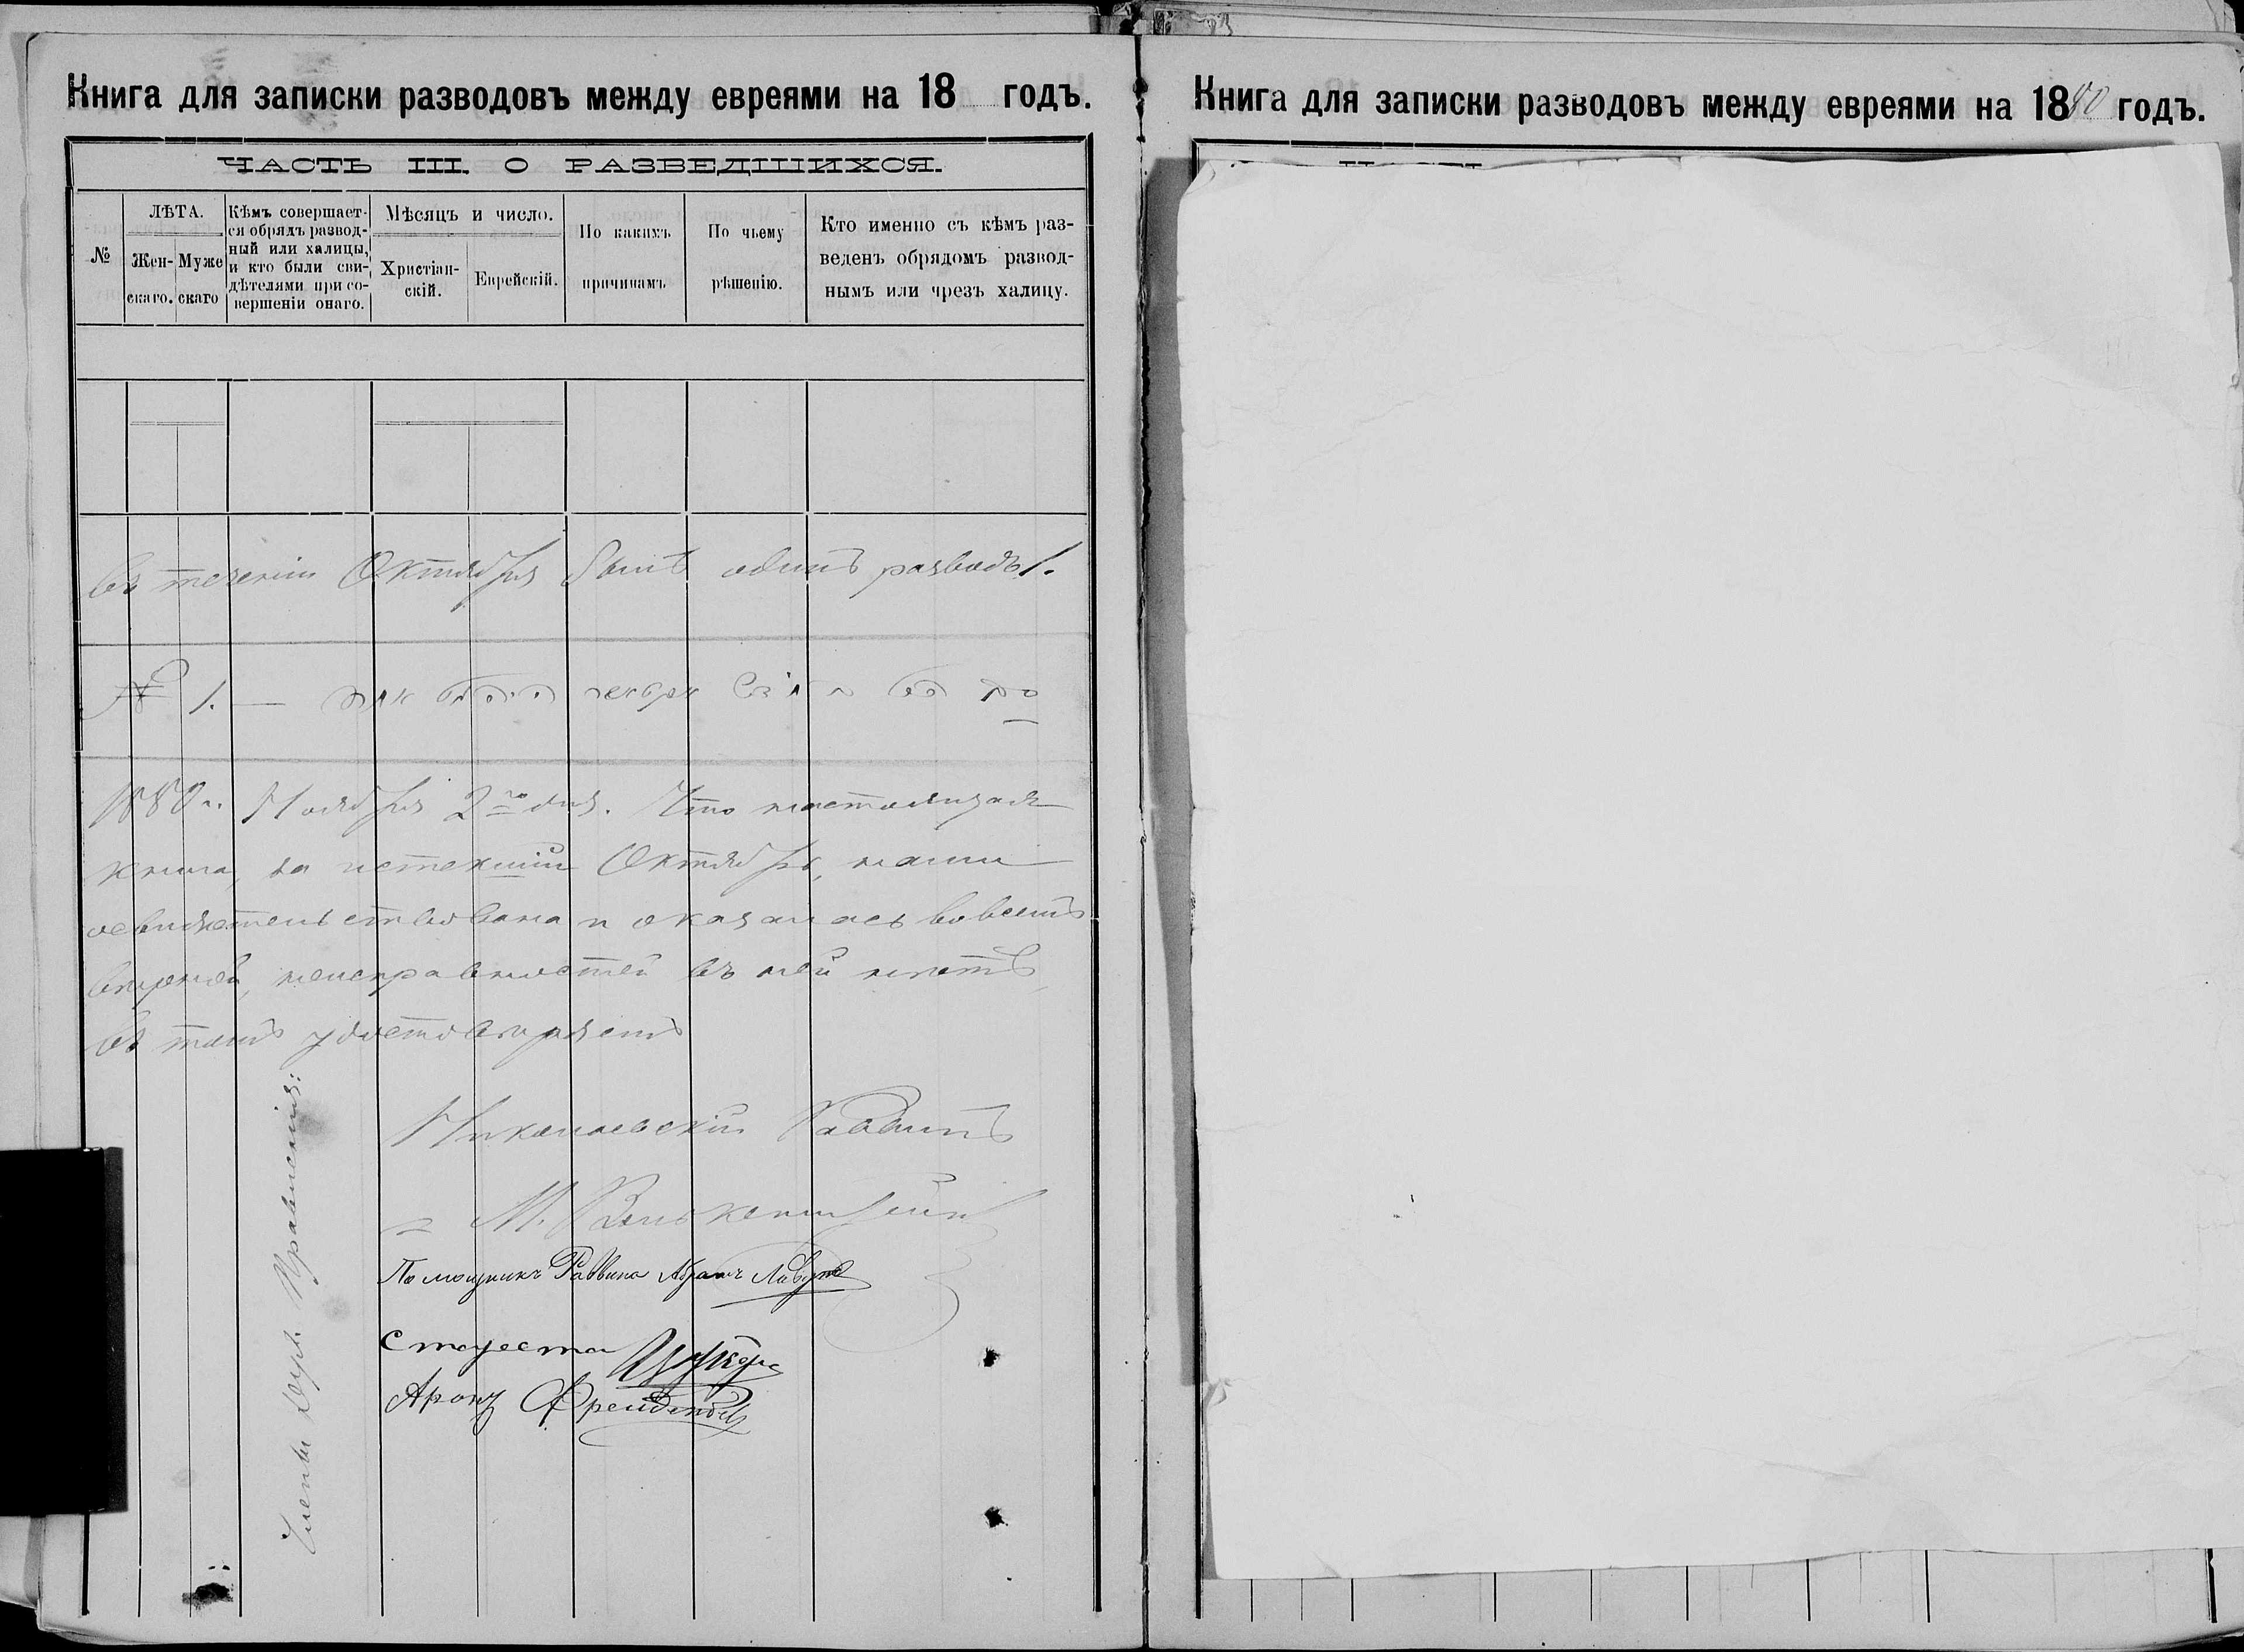 Книга для записки разводовъ между евреями на 18 годъ.
ЧАСТЬ III. О РАЗВЕДШИХСЯ.
№
ЛѢТА.
Жен-
скаго.
Муже
скаго
Кѣмъ совершает-
ся обрядъ развод-
ный или халицы,
и кто были сви-
дѣтелями при со-
вершеніи онаго.
Мѣсяцъ и число.
Христіан-
скій.
Еврейскій.
По какимъ
причинамъ
По чьему
рѣшенію.
Кто именно съ кѣмъ раз-
веденъ обрядомъ развод-
нымъ или чрезъ халицу.
Въ теченіи Октября былъ одинъ разводъ 1.
№ 1. —
1880 г. Ноября 2го дня. Что настоящая
книга, за истекшій Октябрь, нами
освидѣтельствована и оказалась во всемъ
вѣрной, неисправностей въ ней нѣтъ,
въ томъ удостовѣряемъ
Николаевскій Раввинъ
М.
Помощникъ Раввина Абрамъ
Староста Цукеръ
Аронъ
Члены Дух. Правленія:
Книга для записки разводовъ между евреями на 1880 годъ.